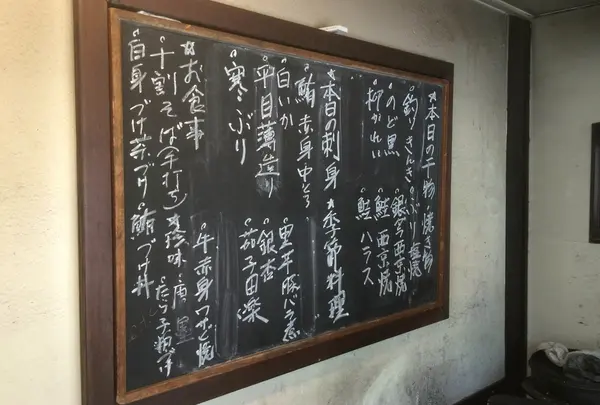 ★本日の干物・焼き物
°釣きんき
°のど黒
°柳かれい
°ぶり塩焼
°銀ダラ西京焼
°鮭西京焼
°鮭ハラス
★本日の刺身
°鮪 赤身 中とろ
°白いか
°平目薄造り
°寒ぶり
★季節料理
°黒平豚バラ煮
°銀杏
°茄子田楽
°牛赤身つなぎ焼
★お食事
°十割そば(手打ち)
°白身づけ茶づけ
°鮪づけ丼
★珍味